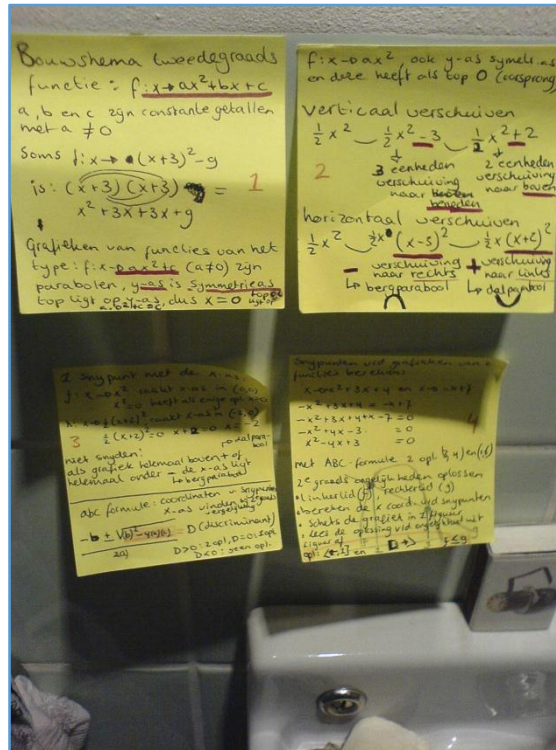 Bouwshema tweedegraads
functie: f: x→ax²+bx+c
a, b en c zijn constante getallen
met a ≠ 0
Soms f: x→ (x+3)²-9
is: (x+3)(x+3) = 1
x²+3x+3x+9
Grafieken van functies van het
type: f: x→ax²+c (a≠0) zijn
parabolen, y-as is symmetrieas
top ligt op y-as, dus x=0
f: x→ax², ook y-as symetr.as
en deze heeft als top O (oorsprong)
verticaal verschuiven
½x² ½x²-3 ½x²+2
2
3 eenheden 2 eenheden
verschuiving verschuiving
naar beneden naar boven
horizontaal verschuiven
½x² ½x (x-5)² ½x (x+6)²
- verschuiving + verschuiving
naar rechts naar links
↳ bergparabool ↳ dalparabool
1 snypunt met de x-as
f: x→x² raakt x-as in (0,0)
x²=0 heeft als enige opl. x=0
½(x+2)² raakt x-as in (-2,0)
3 ½(x+2)²=0 x+2=0 x=-2
niet snyden:
als grafiek helemaal boven + of
helemaal onder - de x-as ligt
↳ bergparabool
abc formule: coördinaten v. snypunten
x-as vinden
D (discriminant)
2a
D>0: 2 opl, D=0: 1 opl
D<0: geen opl.
Snypunten v/d grafieken van 2
functies bereken:
-x²+3x+4 = -x+7
-x²+3x+4+x-7 = 0
-x²+4x-3 = 0
x²-4x+3 = 0
4
met ABC-formule 2 opl. (3,4) en (1,6)
2e graads ongelijkheden oplossen
linkerlid (f) rechterlid (g)
bereken de x coörd. v/d snypunten
schets de grafiek in 1 figuur
lees de oplossing v/d ongelijkheid uit
figuur af